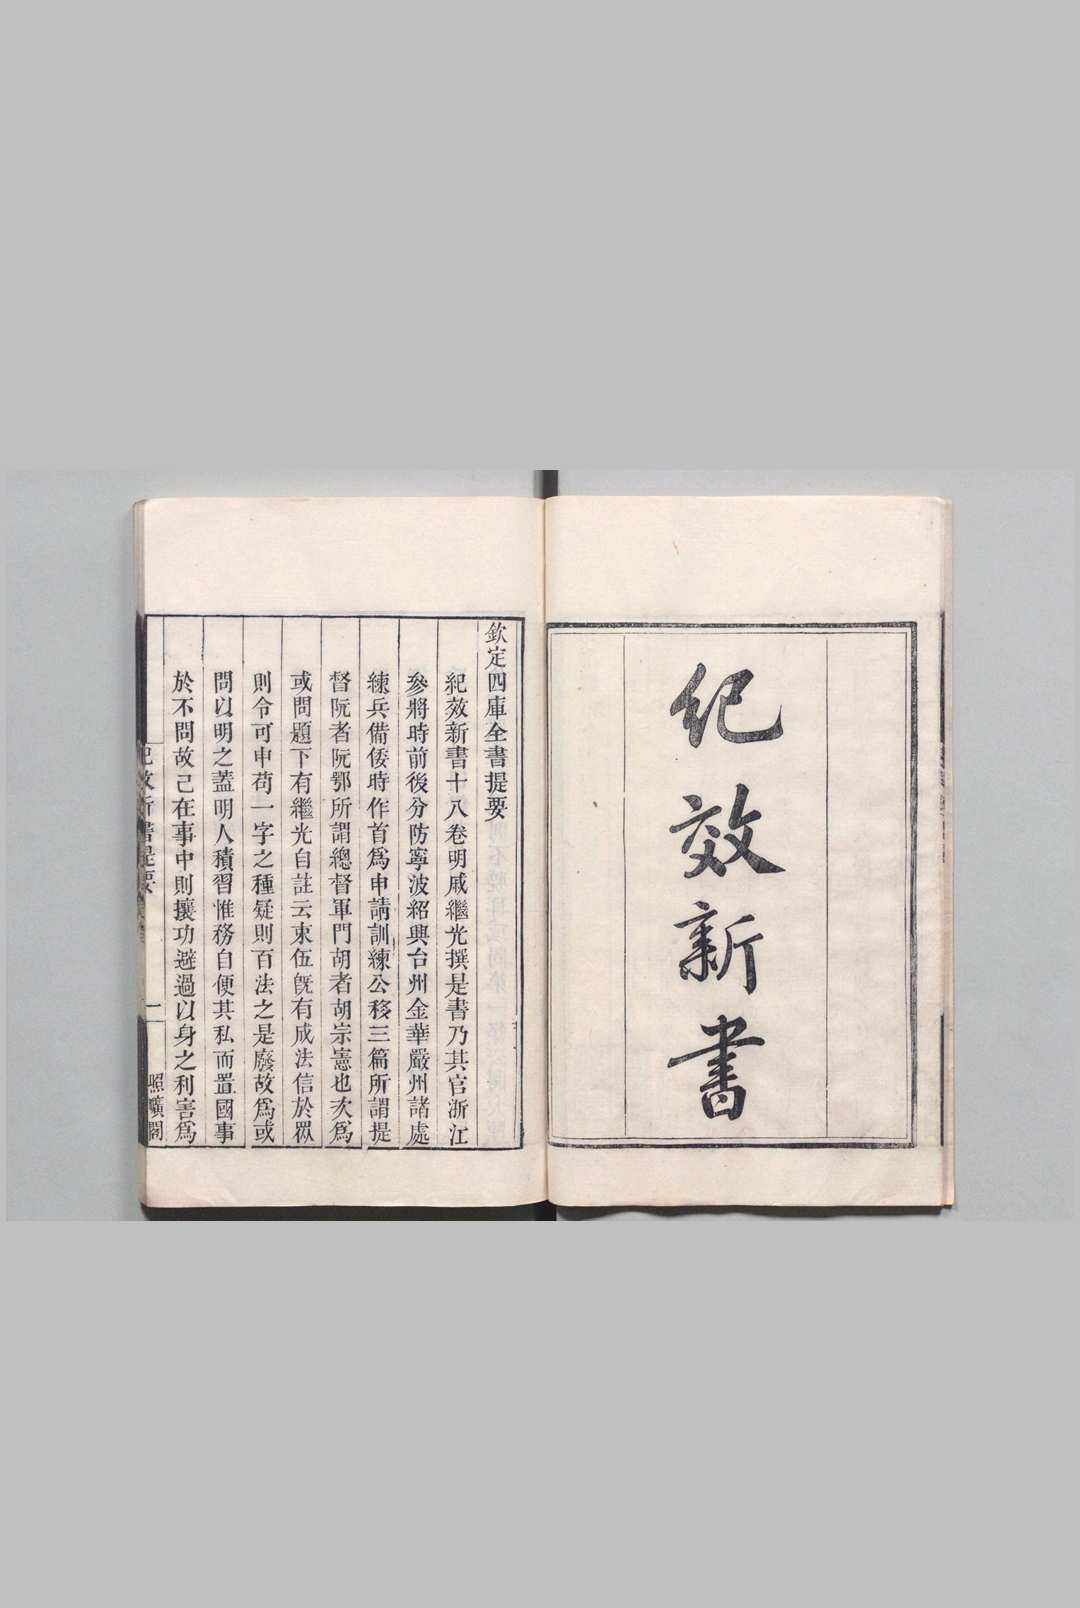 紀效新書
欽定四庫全書提要
紀效新書十八卷明戚繼光撰是書乃其官浙江
參將時前後分防寧波紹興台州金華嚴州諸處
練兵備倭時作首爲申請訓練公移三篇所謂提
督阮者阮鄂所謂總督軍門胡者胡宗憲也次爲
或問題下有繼光自註云束伍旣有成法信於眾
則令可申苟一字之種疑則百法之是廢故爲或
問以明之蓋明人積習惟務自便其私而置國事
於不問故己在事中則攘功避過以身之利害爲
紀效新書提要
一
照曠閣